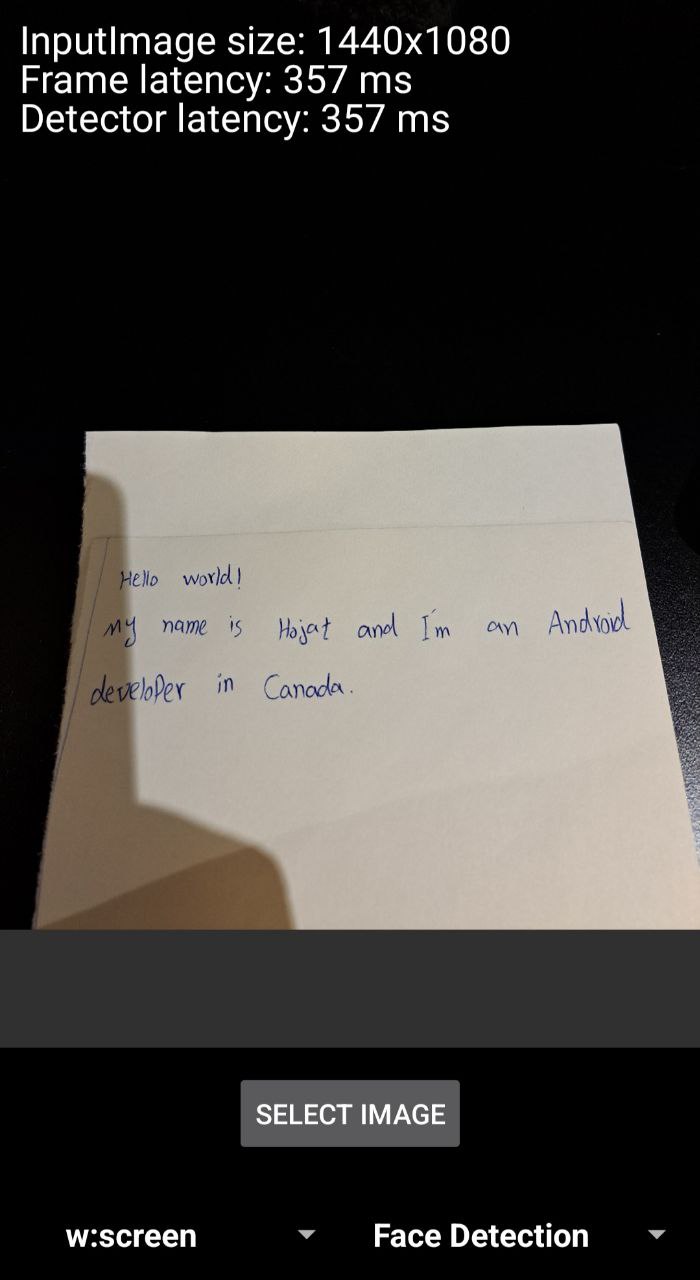 InputImage size: 1440x1080
Frame latency: 357 ms
Detector latency: 357 ms
Hello world!
My name is Hojat and I'm an Android
developer in Canada.
SELECT IMAGE
w:screen Face Detection